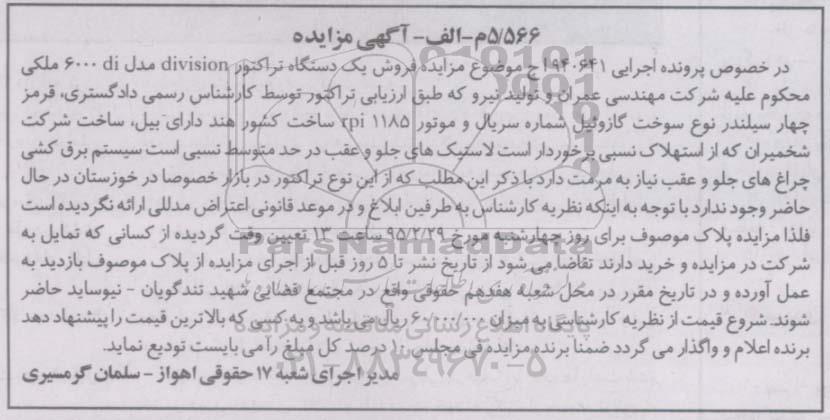 ۵/۵۶۶م-الف- آگهی مزایده
در خصوص پرونده اجرایی ۹۴۰۶۴۱ اج موضوع مزایده فروش یک دستگاه تراکتور division مدل di ۶۰۰۰ ملکی
محکوم علیه شرکت مهندسی عمران و تولید نیرو که طبق ارزیابی تراکتور توسط کارشناس رسمی دادگستری، قرمز
چهار سیلندر نوع سوخت گازوئیل شماره سریال و موتور ۱۱۸۵ rpi ساخت کشور هند دارای بیل، ساخت شرکت
شخمیران که از استهلاک نسبی برخوردار است لاستیک های جلو و عقب در حد متوسط نسبی است سیستم برق کشی
چراغ های جلو و عقب نیاز به مرمت دارد با ذکر این مطلب که از این نوع تراکتور در بازار خصوصا در خوزستان در حال
حاضر وجود ندارد با توجه به اینکه نظریه کارشناس به طرفین ابلاغ و در موعد قانونی اعتراض مدللی ارائه نگردیده است
فلذا مزایده پلاک موصوف برای روز چهارشنبه مورخ ۹۵/۲/۲۹ ساعت ۱۳ تعیین وقت گردیده از کسانی که تمایل به
شرکت در مزایده و خرید دارند تقاضا می شود از تاریخ نشر تا ۵ روز قبل از اجرای مزایده از پلاک موصوف بازدید به
عمل آورده و در تاریخ مقرر در محل شعبه هفدهم حقوقی واقع در مجتمع قضایی شهید تندگویان - نیوساید حاضر
شوند. شروع قیمت از نظریه کارشناسی به میزان ۶۰/۰۰۰/۰۰۰ ریال می باشد و به کسی که بالاترین قیمت را پیشنهاد دهد
برنده اعلام و واگذار می گردد ضمنا برنده مزایده فی مجلس ۱۰ درصد کل مبلغ را می بایست تودیع نماید.
مدیر اجرای شعبه ۱۷ حقوقی اهواز - سلمان گرمسیری
ParsNamadData
پایگاه اطلاع رسانی مناقصه و مزایده
۰۲۱-۸۸۳۴۹۶۷۰-۵